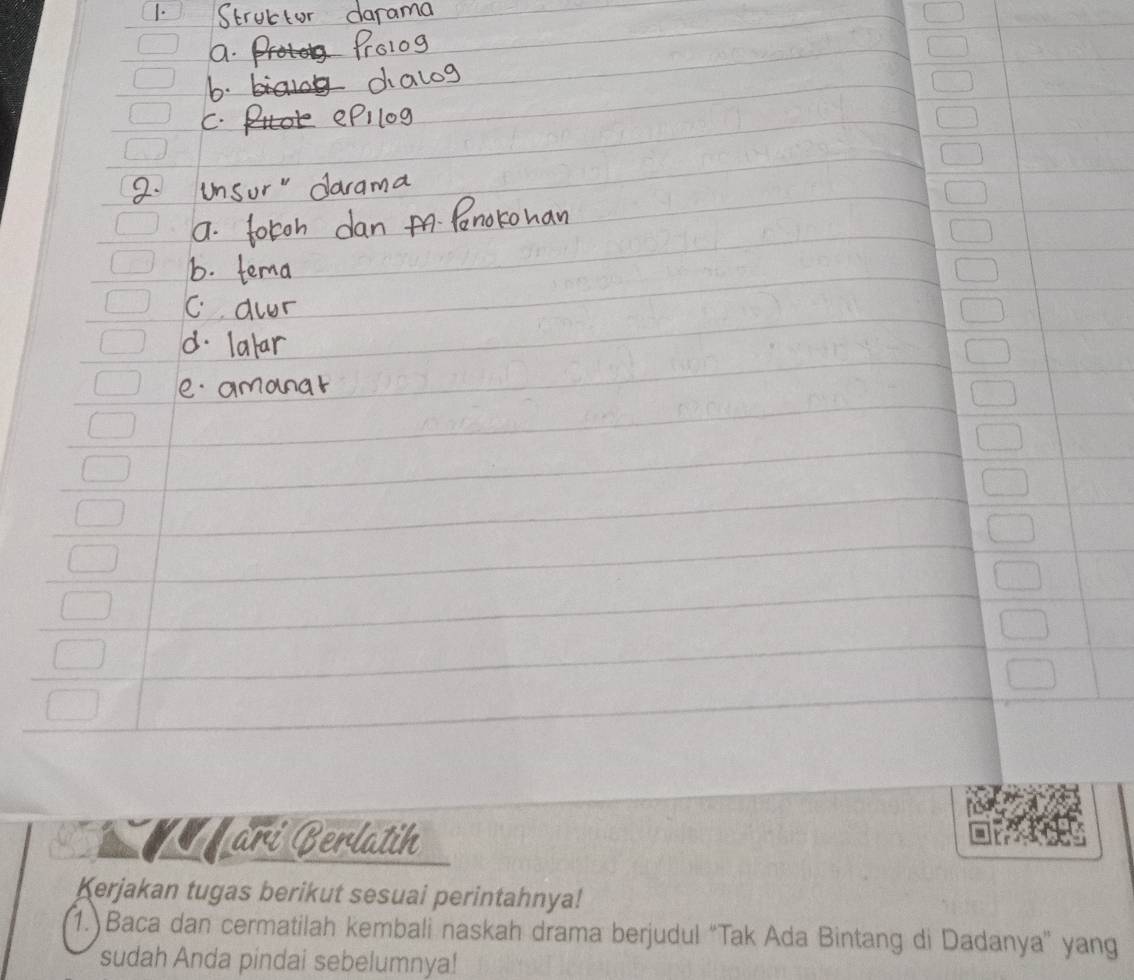 1. Struktur darama
a. Prolog Prolog
b. bialog dialog
c. epilog
2. unsur" darama
a. tokoh dan Penokohan
b. tema
c. alur
d. latar
e. amanat
Mari Berlatih
Kerjakan tugas berikut sesuai perintahnya!
1. Baca dan cermatilah kembali naskah drama berjudul "Tak Ada Bintang di Dadanya" yang
sudah Anda pindai sebelumnya!